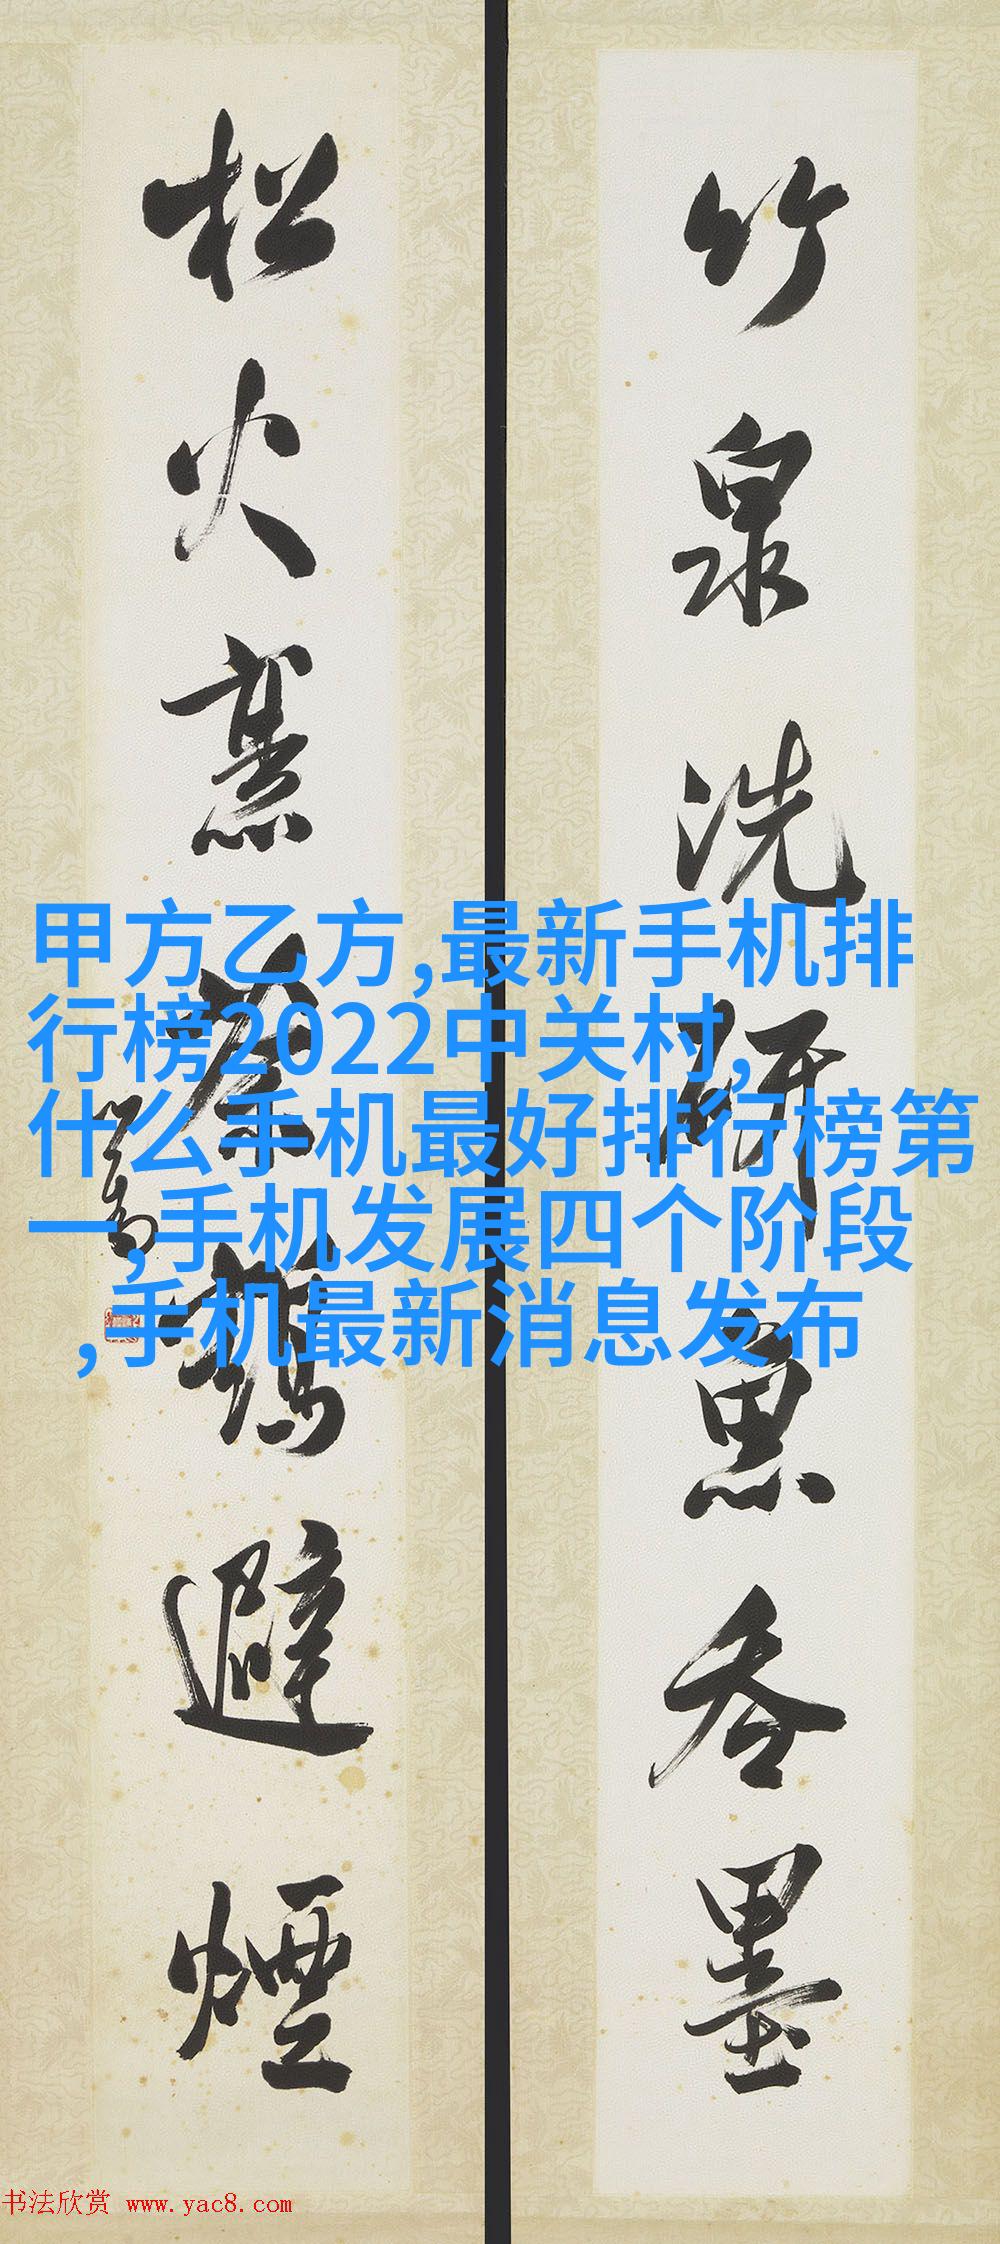 竹泉洗研魚吞墨
松火烹茶鶴避煙
心畬
甲方乙方,最新手机排
行榜2022中关村,
什么手机最好排行榜第
一,手机发展四个阶段
,手机最新消息发布
书法欣赏 www.yac8.com